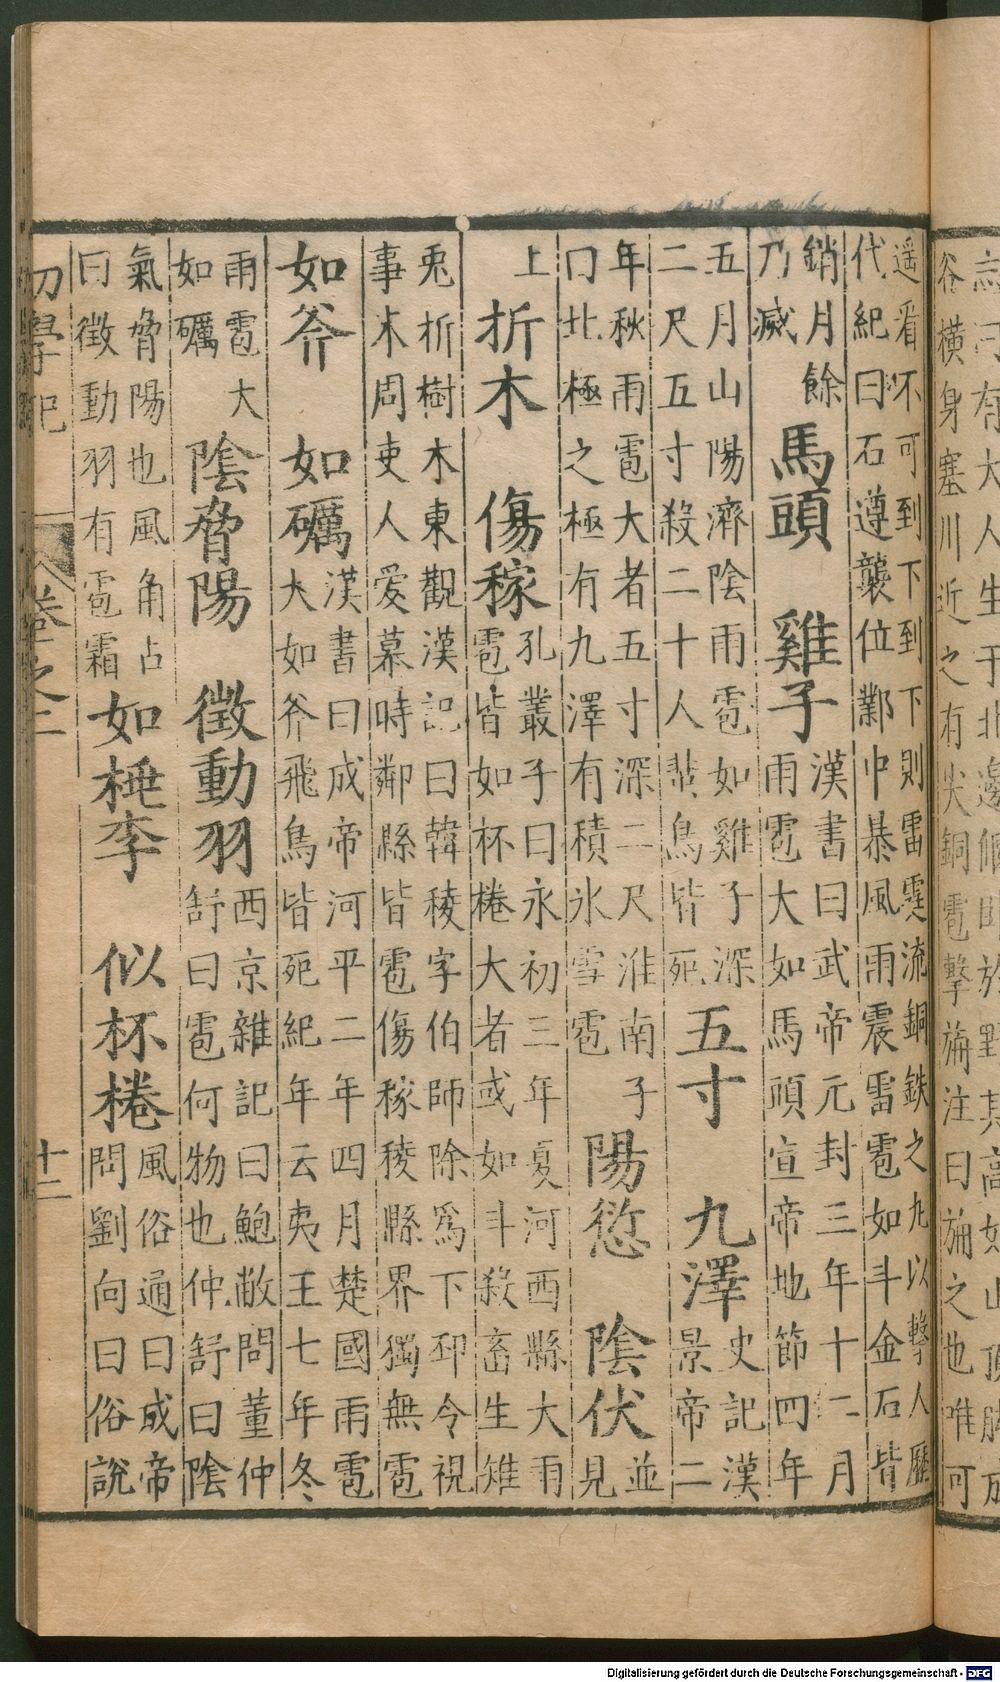 有大人生于北邊偃臥於野其高如山頂脚成
谷橫身塞川近之有尖銅雹擊旃注曰旃之也唯可
遥看不可到下到下則雷霆流銅鉄之丸以擊人歷
代紀曰石遵襲位鄴中暴風雨震雷雹如斗金石皆
銷月餘
乃滅
馬頭 雞子
漢書曰武帝元封三年十二月
雨雹大如馬頭宣帝地節四年
五月山陽濟陰雨雹如雞子深
二尺五寸殺二十人蜚鳥皆死
五寸 九澤
史記漢
景帝二
年秋雨雹大者五寸深二尺淮南子
曰北極之極有九澤有積氷雪雹
陽愆 陰伏
並
見
上
折木 傷稼
孔叢子曰永初三年夏河西縣大雨
雹皆如杯棬大者或如斗殺畜生雉
兎折樹木東觀漢記曰韓稜字伯師除爲下邳令視
事木周吏人愛慕時鄰縣皆雹傷稼稜縣界獨無雹
如斧 如礪
漢書曰成帝河平二年四月楚國雨雹
大如斧飛鳥皆死紀年云夷王七年冬
雨雹大
如礪
陰脅陽 徵動羽
西京雜記曰鮑敞問董仲
舒曰雹何物也仲舒曰陰
氣脅陽也風角占
曰徵動羽有雹霜
如棰李 似杯棬
風俗通曰成帝
問劉向曰俗說
初學記 卷之二 十二
Digitalisierung gefördert durch die Deutsche Forschungsgemeinschaft - DFG